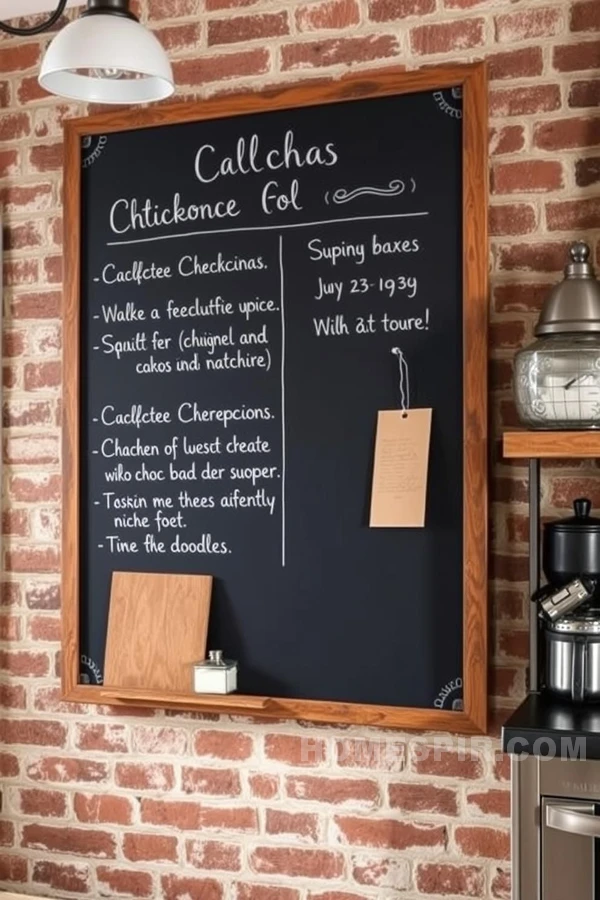 Callchas
Chtickonce Gol
- Caclfctee Checkcinas.
- Walke a feeclutfie upice.
- Squitt fer (chiignel and
cakos indi natchire)
- Caclfctee Cherepcions.
- Chachen of lwest create
wilko choc bad der suoper.
- Toskin me thees aifently
niche foet.
- Tine the doodles.
Suping baxes
Juy 23-1939
With at toure!
HOMESPIR.COM